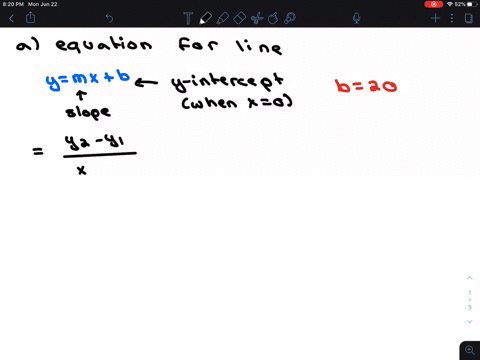 8:20 PM Mon Jun 22
52%
a) equation for line
y=mx+b ← y-intercept b=20
↑ (when x=0)
slope
= y₂-y₁
x
1
/
3